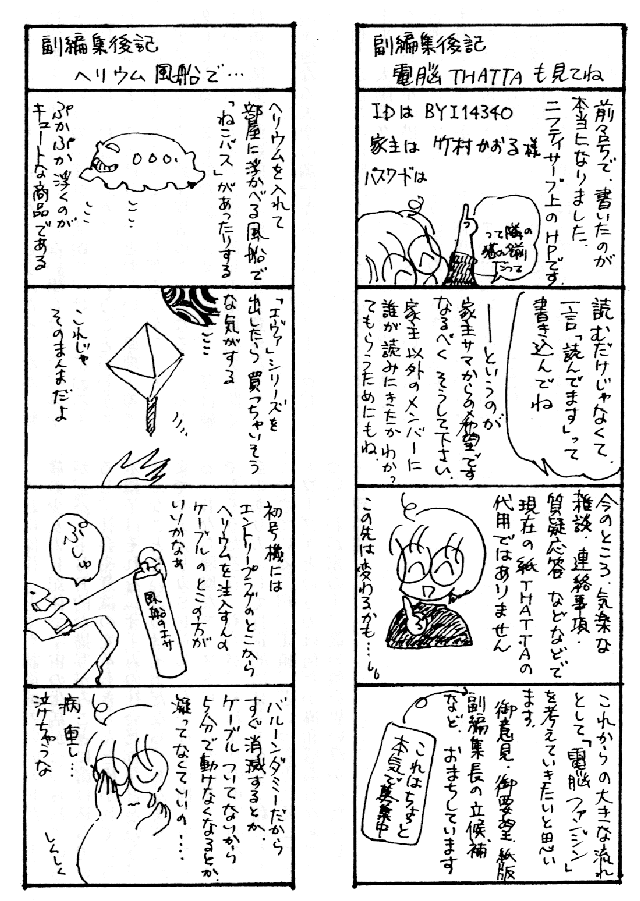 副編集後記
電脳THATTAも見てね
前々号で、書いたのが
本当になりました。
ニフティサーブ上のHPです。
IDは BYI14340
家主は 竹村かおる様
パスワードは
読むだけじゃなくて、
一言「読んでます」って
書き込んでね
——というのが
家主サマからの希望です
なるべくそうして下さい。
家主以外のメンバーに
誰が読みにきたかわかっ
てもらうためにもね。
今のところ、気楽な
雑談・連絡事項・
質疑応答などなどで
現在の紙THATTAの
代用ではありません
この先は変わるかも…
これからの大きな流れ
として「電脳ファンジン」
を考えていきたいと思い
ます。
御意見・御要望、紙版
副編集長の立候補
など、おまちしています
これはちょと
本気で募集中
副編集後記
ヘリウム風船で…
ヘリウムを入れて
部屋に浮かべる風船で
「ねこバス」があったりする
ぷかぷか浮くのが
キュートな商品である
「エヴァ」シリーズを
出したら買っちゃいそう
な気がする
これじゃ
そのまんまだよ
初号機には
エントリープラグのとこから
ヘリウムを注入すんの
ケーブルのとこの方が
いいかなぁ
ぷしゅ
風船のエサ
バルーンダミーだから
すぐ消滅するとか、
ケーブルついてないから
5分で動けなくなるとか、
凝ってなくていいの……
病、重し…
泣けちゃうな
しくしく